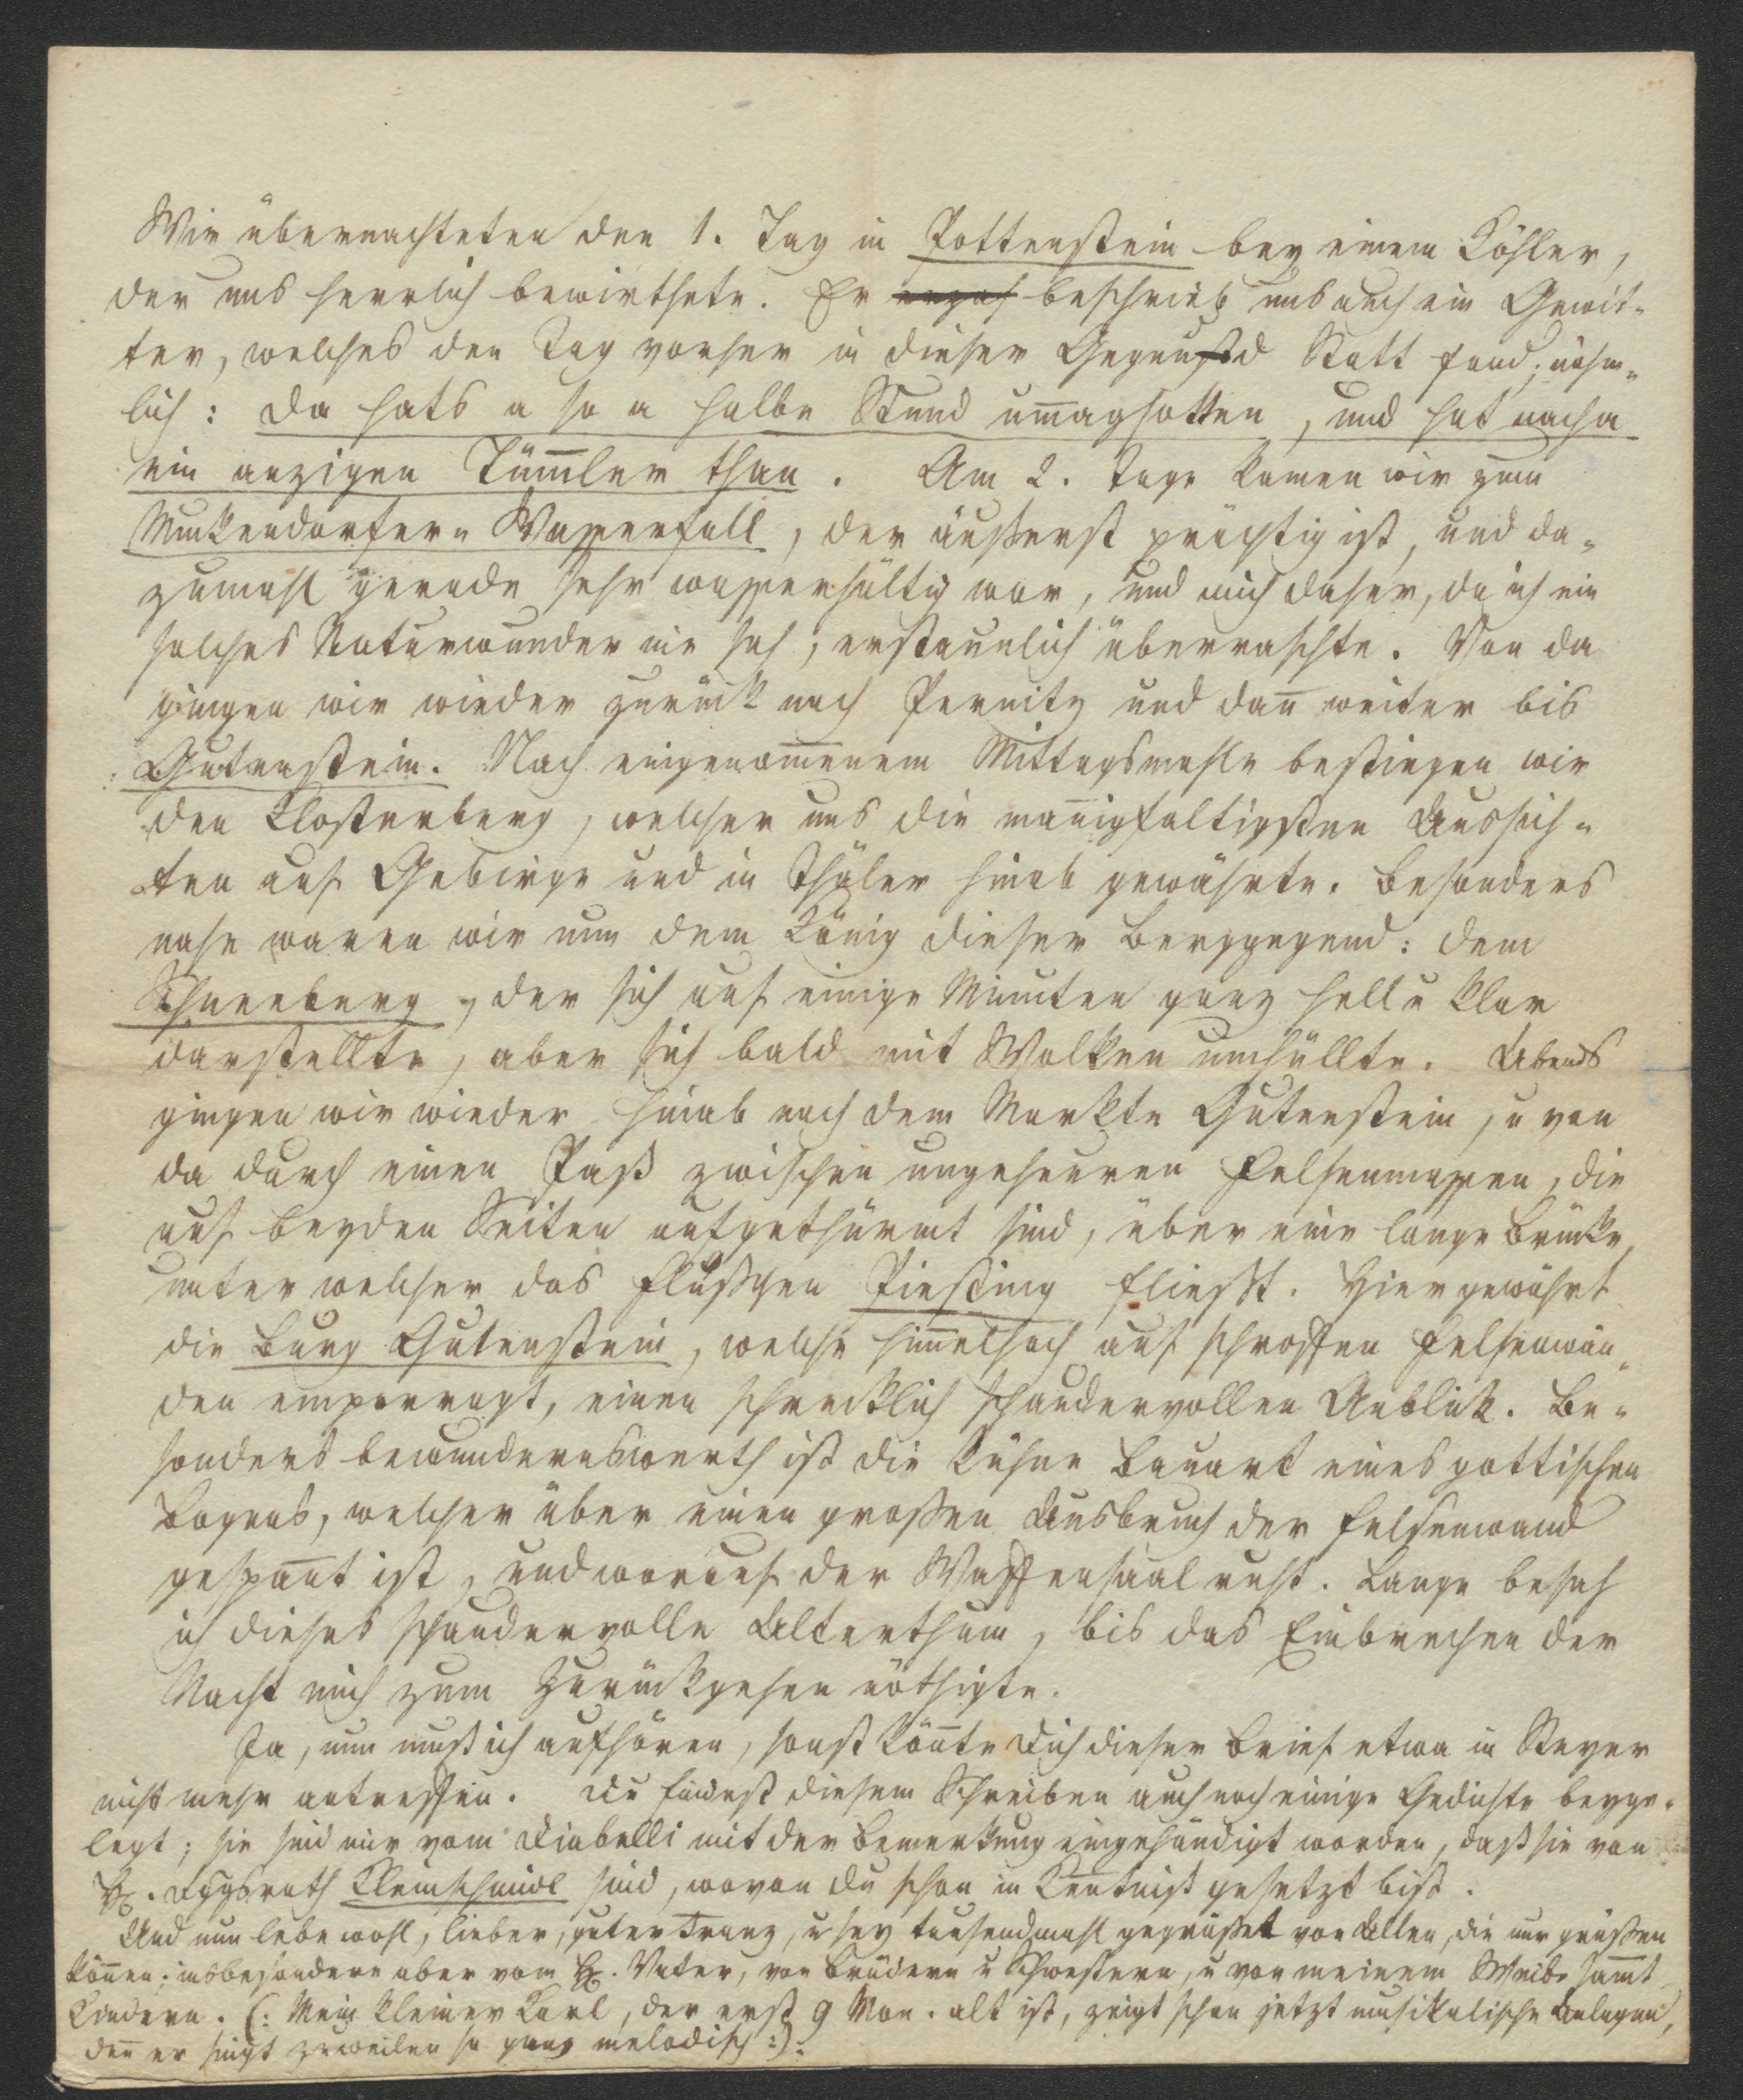 Wir übernachteten den 1. Tag in Pottenstein bey einem Köhler,
der uns herrlich bewirthete. Er beschrieb uns auch ein Gewit-
ter, welches den Tag vorher in dieser Gegend Statt fand; nähm-
lich: da hats a so a halbe Stund um̅agsotten, und hat nacha
ein anzigen Tum̅ler than. Am 2. Tage kamen wir zum
Muckendorfer-Wasserfall, der äußerst prächtig ist, und da-
zumahl gerade sehr wasserhältig war, und mich daher, da ich ein
solches Naturwunder nie sah, erstaunlich überraschte. Von da
gingen wir wieder zurück nach Pernitz und dan̅ weiter bis
Gutenstein. Nach eingenom̅enem Mittagsmahle bestiegen wir
den Klosterberg, welcher uns die man̅igfaltigsten Aussich-
ten auf Gebirge und in Thäler hinab gewährte. Besonders
nahe waren wir nun dem König dieser Berggegend: dem
Schneeberg, der sich auf einige Minuten ganz hell u klar
darstellte, aber sich bald mit Wolken umhüllte. Abends
gingen wir wieder hinab nach dem Markte Gutenstein, u von
da durch einen Paß zwischen ungeheuren Felsenmassen, die
auf beyden Seiten aufgethürmt sind, über eine lange Brücke,
unter welcher das Flüßchen Piesting fließt. Hier gewährt
die Burg Gutenstein, welche him̅elhoch auf schroffen Felsenwän-
den emporragt, einen schrecklich schaudervollen Anblick. Be-
sonders bewundernswerth ist die kühne Bauart eines gottischen
Bogens, welcher über einen großen Ausbruch der Felsenwand
gespan̅t ist, und worauf der Waffensaal ruht. Lange besah
ich dieses schaudervolle Alterthum, bis das Einbrechen der
Nacht mich zum Zurückgehen nöthigte.
Ja, nun muß ich aufhören, sonst kön̅te Dich dieser Brief etwa in Steyer
nicht mehr antreffen. Du findest diesem Schreiben auch noch einige Gedichte beyge-
legt; sie sind mir vom Diabelli mit der Bemerkung eingehändigt worden, daß sie von
H. Kleinschmidl sind, wovon du schon in Ken̅tniß gesetzt bist.
Und nun lebe wohl, lieber, guter Franz, u sey tausendmahl gegrüßet von Allen, die nur grüßen
kön̅en; insbesondere aber vom H. Vater, von Brüdern u Schwestern, u von meinem Weibe sam̅t
Kindern. (: Mein kleiner Karl, der erst 9 Mon. alt ist, zeigt schon jetzt musikalische Anlagen,
den̅ er singt zuweilen so ganz melodisch :).